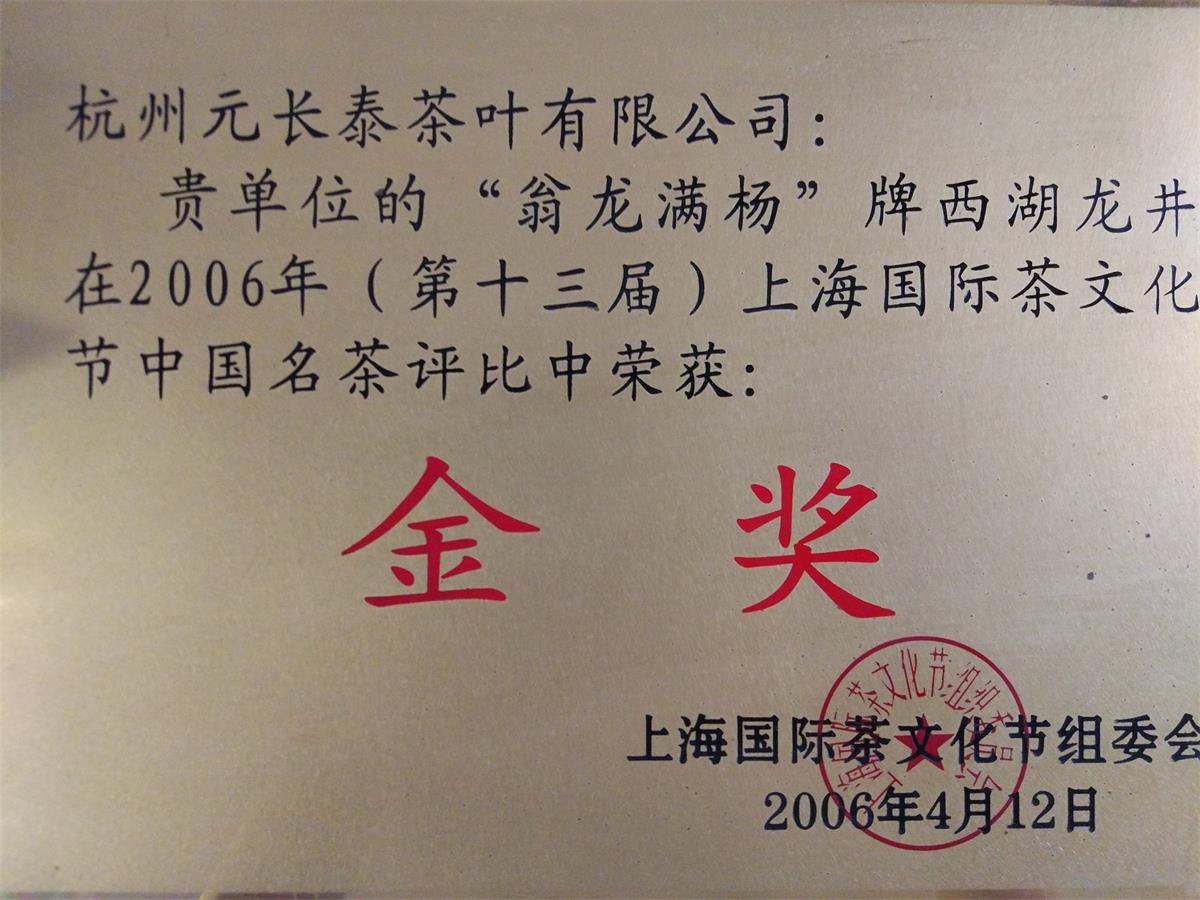 杭州元长泰茶叶有限公司：
贵单位的“翁龙满杨”牌西湖龙井
在2006年（第十三届）上海国际茶文化
节中国名茶评比中荣获：
金 奖
上海国际茶文化节组织委员会
上海国际茶文化节组委会
2006年4月12日